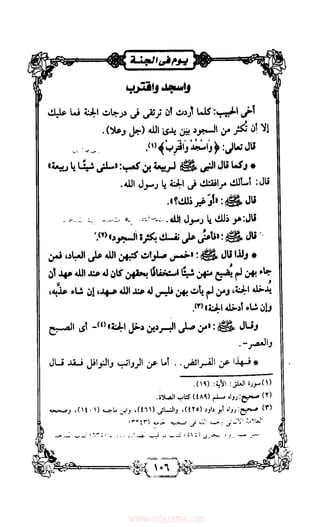 يوم فى الجنة
واسجد واقترب
أخى الحبيب: كلما أردت أن ترتقى فى درجات الجنة فما عليك
إلا أن تُكثر من السجود بين يدى الله (جل وعلا).
قال تعالى: ﴿وَاسْجُدْ وَاقْتَرِبْ﴾(١).
* وكما قال النبى ﷺ لربيعة بن كعب: «سلنى شيئًا يا ربيعة»
قال: أسألك مرافقتك فى الجنة يا رسول الله.
قال ﷺ: «أوَ غير ذلك؟».
قال: هو ذلك يا رسول الله.
قال ﷺ: «فأعنِّى على نفسك بكثرة السجود»(٢).
* ولذا قال ﷺ: «خمس صلوات كتبهن الله على العباد، فمن
جاء بهن لم يُضيع منهن شيئًا استخفافًا بحقهن كان له عند الله عهد أن
يُدخله الجنة، ومن لم يأت بهن فليس له عند الله عهد، إن شاء عذَّبه،
وإن شاء أدخله الجنة»(٣).
وقال ﷺ: «من صلى البردين دخل الجنة»(٤) - أى الصبح
والعصر-.
* فهذا عن الفرائض.. أما عن الرواتب والنوافل فقد قال
(١) سورة العلق: الآية: (١٩).
(٢) صحيح: رواه مسلم (٤٨٩) كتاب الصلاة.
(٣) صحيح: رواه أبو داود (٤٢٥)، والنسائى (٤٦١)، وابن ماجه (١٤٠١)، وصححه
العلامة الألبانى رحمه الله فى صحيح الجامع (٣٢٤٣)
١٠٦
www.ibtesama.com